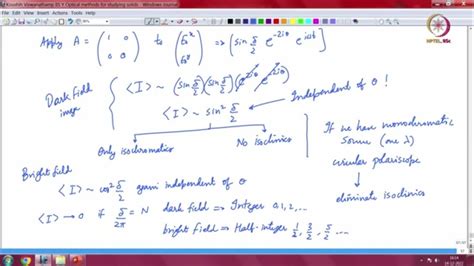 Koushik Viswanathan's ES Y Optical methods for studying solids - Windows Journal
NPTEL
Apply A = (1 0 0 0) to (E'x E'y) ⇒ (sin δ/2 e^-2iθ e^iδt)
Dark Field image
⟨I⟩ ~ (sin δ/2)(sin δ/2)(e^-2iθ)(e^2iθ)
⟨I⟩ ~ sin² δ/2
Independent of θ !
Only isochromatics
No isoclinics
If we have monochromatic source (one λ)
circular polariscope
eliminate isoclinics
Bright field
⟨I⟩ ~ cos² δ/2 again independent of θ
⟨I⟩ → 0 if δ/2π = N dark field ⇒ Integer 0,1,2,...
bright field ⇒ Half-integer 1/2, 3/2, 5/2 ...